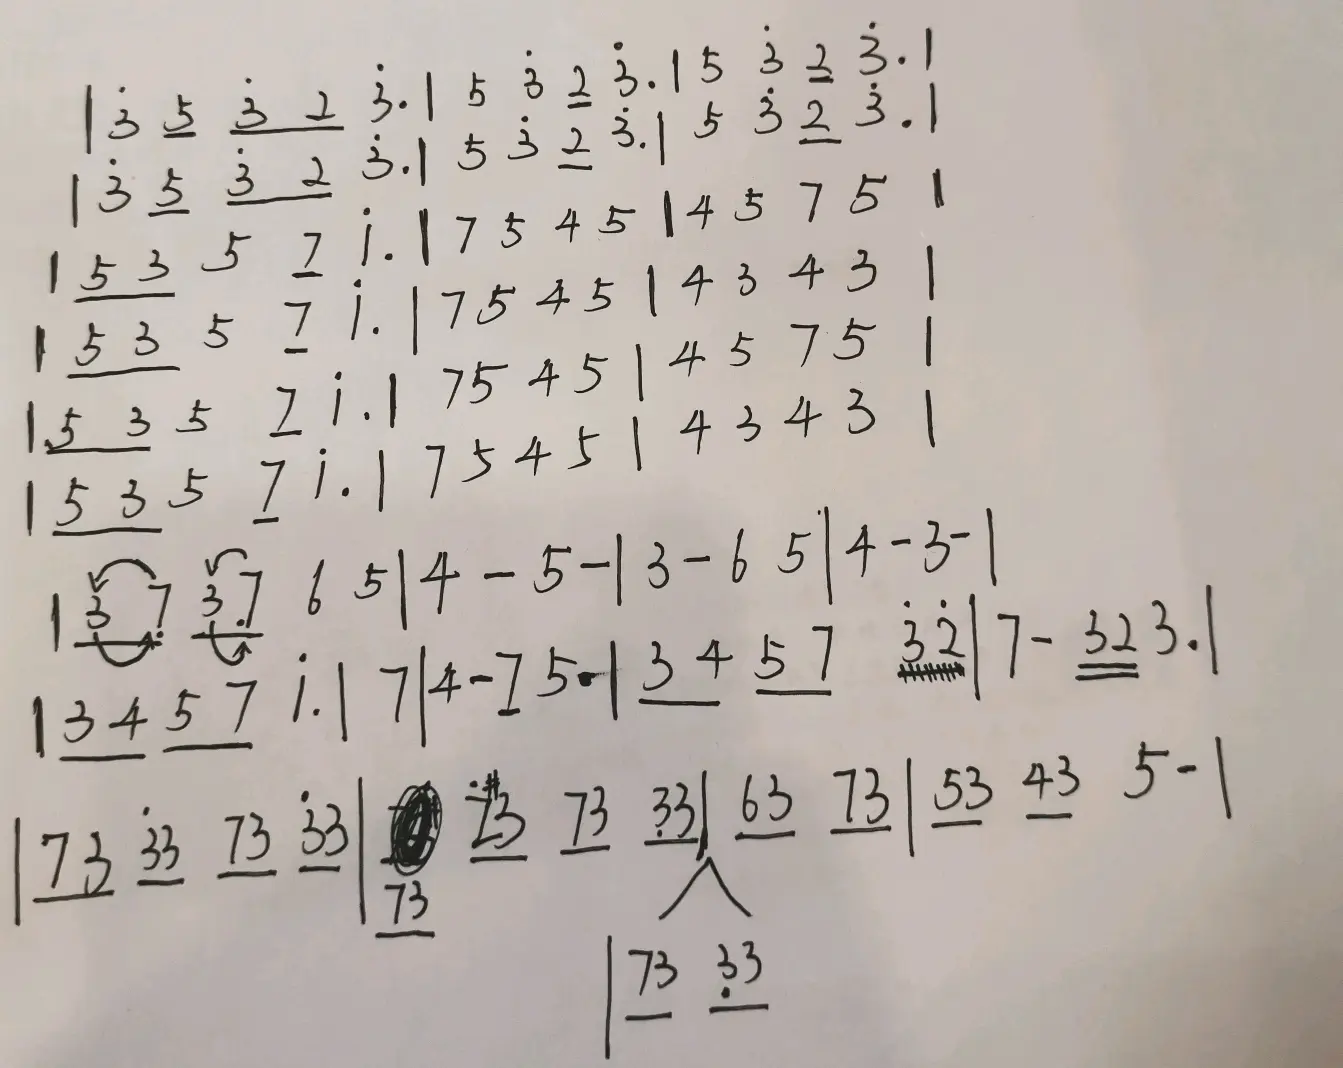 | 3̇ 5̲ 3̲̇ 2̲ 3̇. | 5 3̇ 2̲ 3̇. | 5 3̇ 2̲ 3̇. |
| 3̇ 5̲ 3̲̇ 2̲ 3̇. | 5 3̇ 2̲ 3̇. | 5 3̇ 2̲ 3̇. |
| 5̲ 3̲ 5 7̲ i. | 7 5 4 5 | 4 5 7 5 |
| 5̲ 3̲ 5 7̲ i. | 7 5 4 5 | 4 3 4 3 |
| 5̲ 3̲ 5 7̲ i. | 7 5 4 5 | 4 5 7 5 |
| 5̲ 3̲ 5 7̲ i. | 7 5 4 5 | 4 3 4 3 |
| 3̲ 7̲̣ 3̲ 7̲̣ 6 5 | 4 - 5 - | 3 - 6 5 | 4 - 3 - |
| 3̲ 4̲ 5̲ 7̲ i. | 7 | 4 - 7̲ 5. | 3̲ 4̲ 5̲ 7̲ 3̇ 2̇ | 7 - 3̳ 2̳ 3. |
| 7̲3̲ 3̲̇3̲ 7̲3̲ 3̲̇3̲ | 7̲3̲ 7̲3̲ 3̲̣3̲ | 6̲3̲ 7̲3̲ | 5̲3̲ 4̲3̲ 5 - |
7̲3̲
| 7̲3̲ 3̲̣3̲